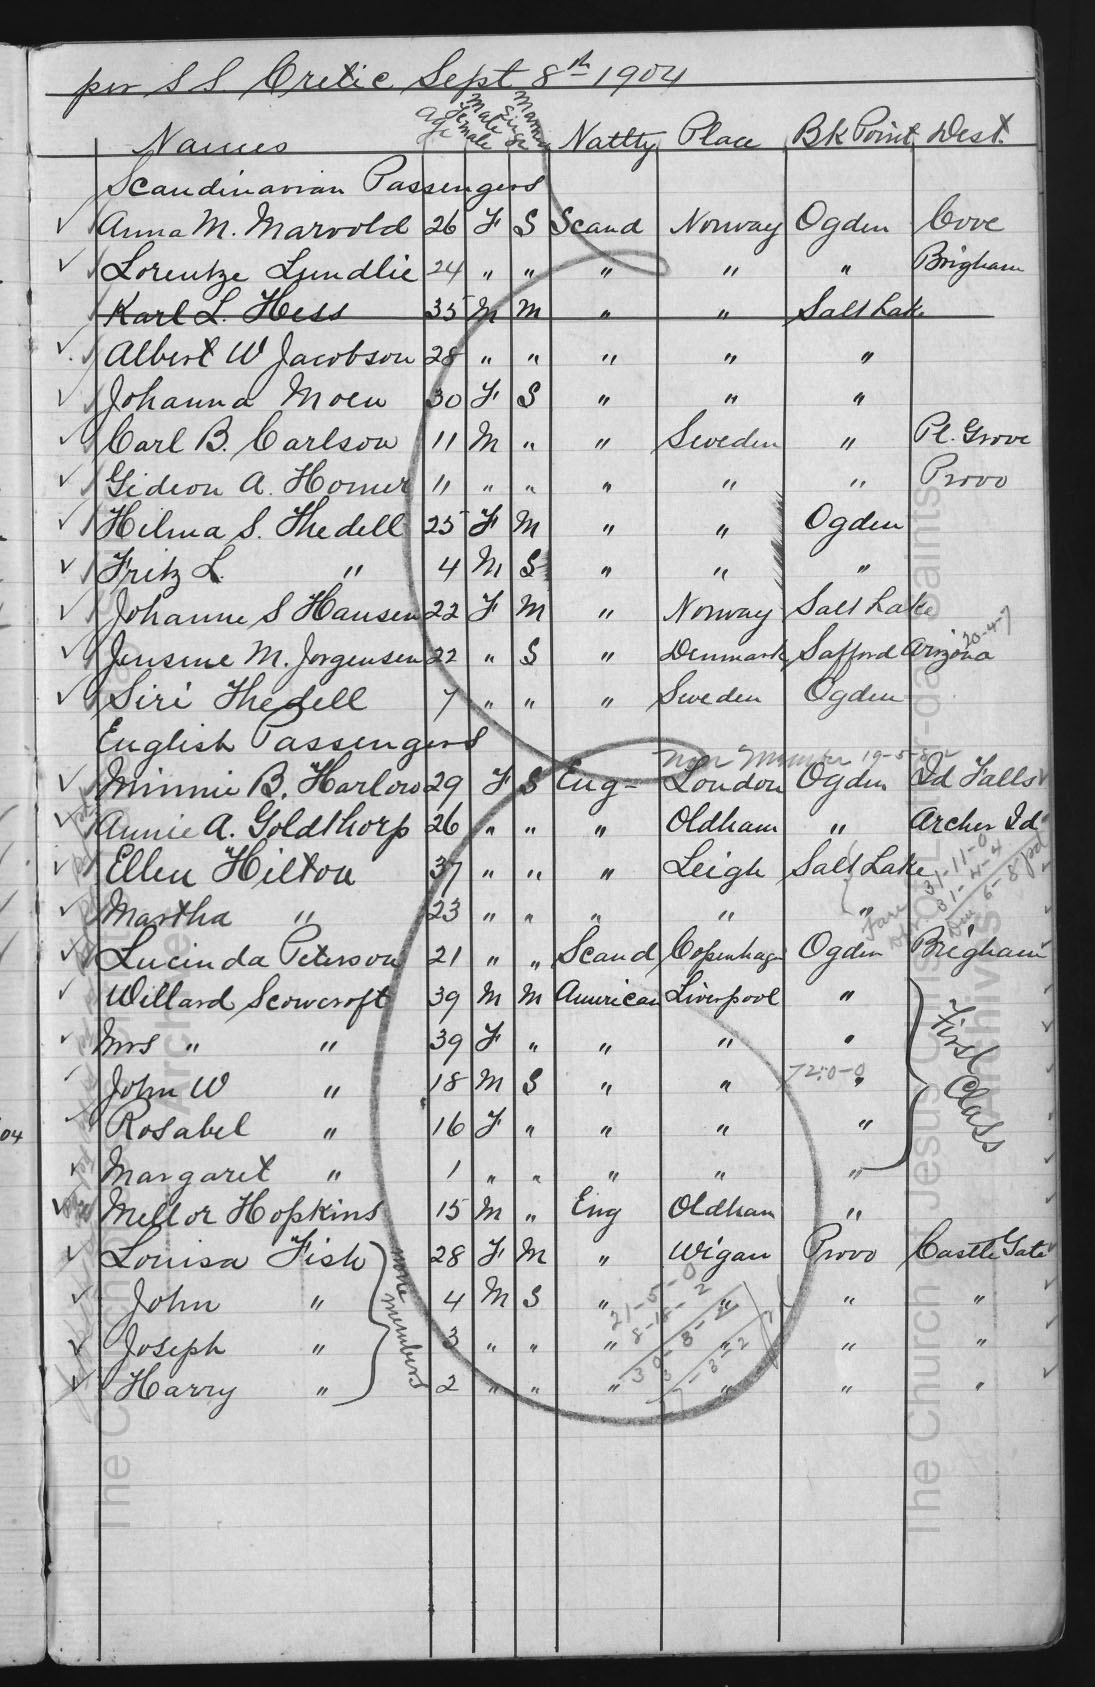 per S S. Cretic Sept 8th 1904
Names Age Male Female Married Single Nattty Place Bk Point Dest.
Scandinavian Passengers
Anna M. Marvold 26 F S Scand Norway Ogden Cove
Lorentze Lundlie 24 " " " " " Brigham
Karl L. Hess 35 M M " " Salt Lake
Albert W Jacobson 28 " " " " "
Johanna Moen 30 F S " " "
Carl B. Carlson 11 M " " Sweden " Pl. Grove
Gideon A. Homer 11 " " " " " Provo
Hilma S. Thedell 25 F M " " Ogden
Fritz L. " 4 M S " " "
Johanne S Hansen 22 F M " Norway Salt Lake
Jensine M. Jorgensen 22 " S " Denmark Safford Arizona 20-4-7
Siri Thedell 7 " " " Sweden Ogden
English Passengers
Non Member 19-5-8
Minnie B. Harlow 29 F S Eng- London Ogden Id Falls
Annie A. Goldthorp 26 " " " Oldham " Archer Id
Ellen Hilton 37 " " " Leigh Salt Lake
Martha " 23 " " " " "
Fare 31-11-0
31-4-4
Due 6-8 pd
Lucinda Peterson 21 " " Scand Copenhagn Ogden Brigham
Willard Scowcroft 39 M M American Liverpool "
Mrs " " 39 F " " " "
John W " 18 M S " " 72-0-0 "
Rosabel " 16 F " " " "
Margaret " 1 " " " " "
First Class
Mellor Hopkins 15 M " Eng Oldham "
Louisa Fish 28 F M " Wigan Provo Castle Gate
John " 4 M S " " " "
Joseph " 3 " " " " " "
Harry " 2 " " " " " "
none members
21-5-0
8-18-2
30-3-2
7-3-2
04
The Church of Jesus Christ of Latter-day Saints
Archives